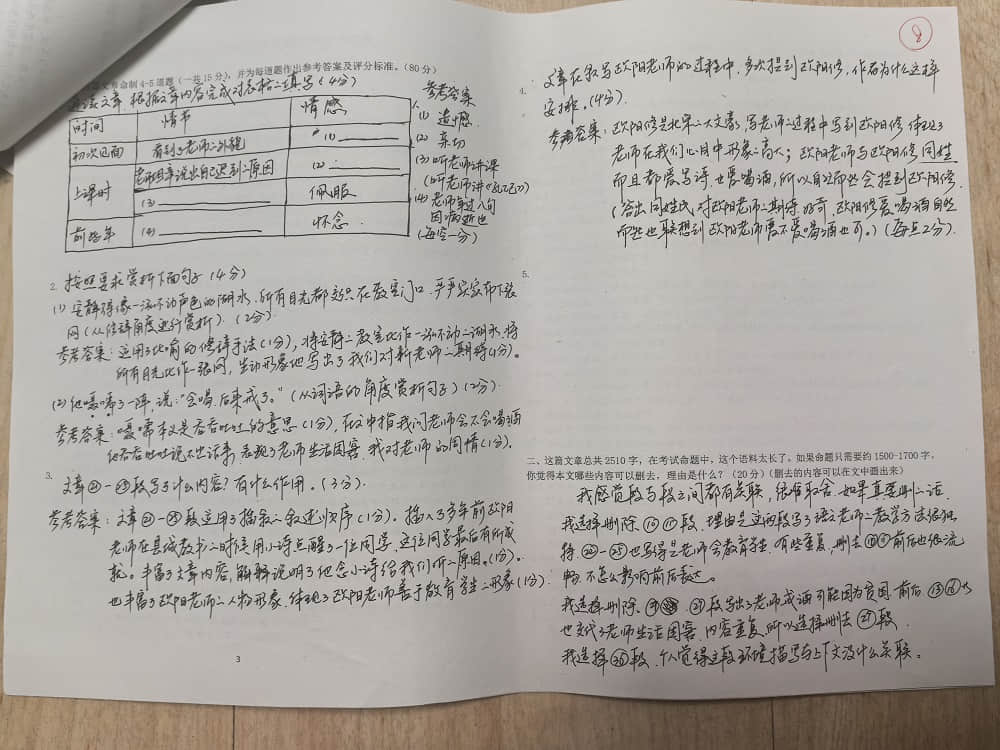 命制4-5道题(一共15分),并为每道题作出参考答案及评分标准。(80分)
文章,根据文章内容完成对表格的填写(4分)
时间 情节 情感
初次见面 看到了老师的外貌 (1)
上课时 老师坦率说出自己迟到的原因 (2)
(3) 佩服
前些年 (4) 怀念
参考答案
1.
(1) 遗憾
(2) 亲切
(3) 听老师讲课
(听老师讲《孔乙己》)
(4) 老师年过八旬
因病逝世
(每空一分)
2. 按照要求赏析下面句子(4分)
(1) 安静得像一泓不动声色的湖水,所有目光都交织在教室门口,严严实实布下张
网(从修辞角度进行赏析)。(2分)
参考答案:运用了比喻的修辞手法(1分),将安静的教室比作一泓不动的湖水,将
所有目光比作一张网,生动形象地写出了我们对新老师的期待(1分)。
(2) 他嗫嚅了一阵,说:“会喝,后来戒了。”(从词语的角度赏析句子)(2分)
参考答案:嗫嚅本义是吞吞吐吐的意思(1分),在文中指我问老师会不会喝酒
他吞吞吐吐说不出话来,表现了老师生活困窘,我对老师的同情(1分)。
3. 文章㉑-㉕段写了什么内容?有什么作用。(3分)
参考答案:文章㉑-㉕段运用了插叙的叙述顺序(1分)。插入了多年前欧阳
老师在县城教书的时候用小诗点醒了一位同学,这位同学最后有所成
就。丰富了文章内容,解释说明了他念小诗给我们听的原因。(1分)。
也丰富了欧阳老师的人物形象,体现了欧阳老师善于教育学生的形象(1分)
3
8
4. 文章在叙写欧阳老师的过程中,多次提到欧阳修,作者为什么这样
安排。(4分)
参考答案:欧阳修是北宋的大文豪,写老师的过程中写到欧阳修,体现了
老师在我们心目中形象的高大;欧阳老师与欧阳修同姓
而且都爱写诗,也爱喝酒,所以自然而然会提到欧阳修。
(答出同姓氏,对欧阳老师的期待好奇,欧阳修爱喝酒自然
而然也联想到欧阳老师爱不爱喝酒也可。)(每点2分)
5.
二、这篇文章总共2510字,在考试命题中,这个语料太长了。如果命题只需要约1500-1700字,
你觉得本文哪些内容可以删去,理由是什么?(20分)(删去的内容可以在文中圈出来)
我感觉段与段之间都有关联,很难取舍,如果真要删的话,
我选择删除⑯⑰段,理由是这两段写了语文老师的教学方法很独
特,㉒-㉕也写得是老师会教育学生,有些重复,删去⑯⑰前后也很流
畅,不怎么影响前后表达。
我选择删除㉗段,写出了老师戒酒可能因为贫困,前后
也交代了老师生活困窘,内容重复,所以选择删去㉗段。
我选择段,个人觉得这段环境描写与上下文没什么关联。